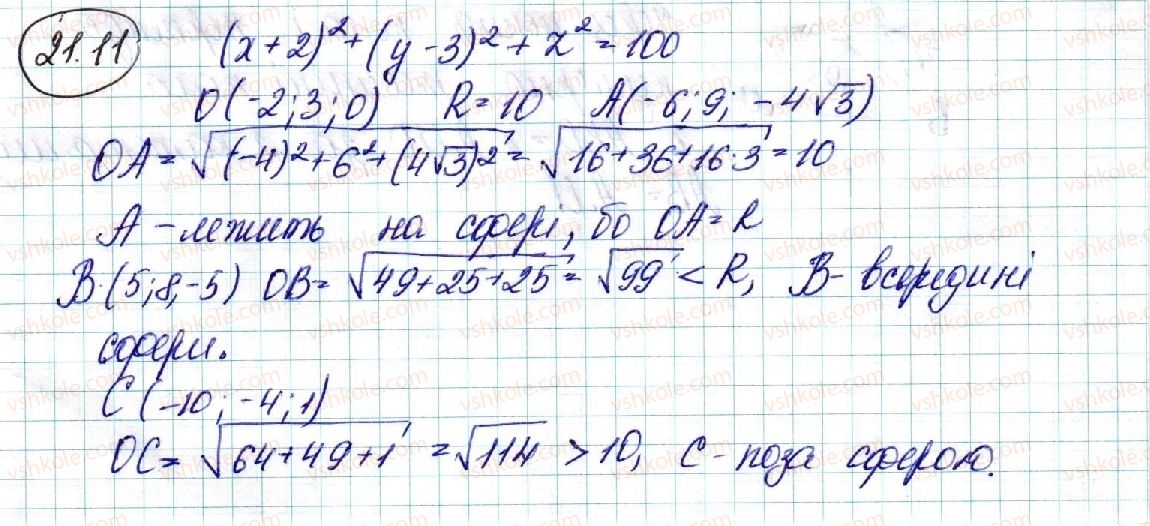 21.11
(x+2)²+(y-3)²+z²=100
O(-2;3;0) R=10 A(-6;9;-4√3)
OA=√(-4)²+6²+(4√3)²=√16+36+16·3=10
A-лежить на сфері, бо OA=R
B(5;8;-5) OB=√49+25+25=√99<R, B-всередині
сфери.
C(-10;-4;1)
OC=√64+49+1=√114>10, C-поза сферою.